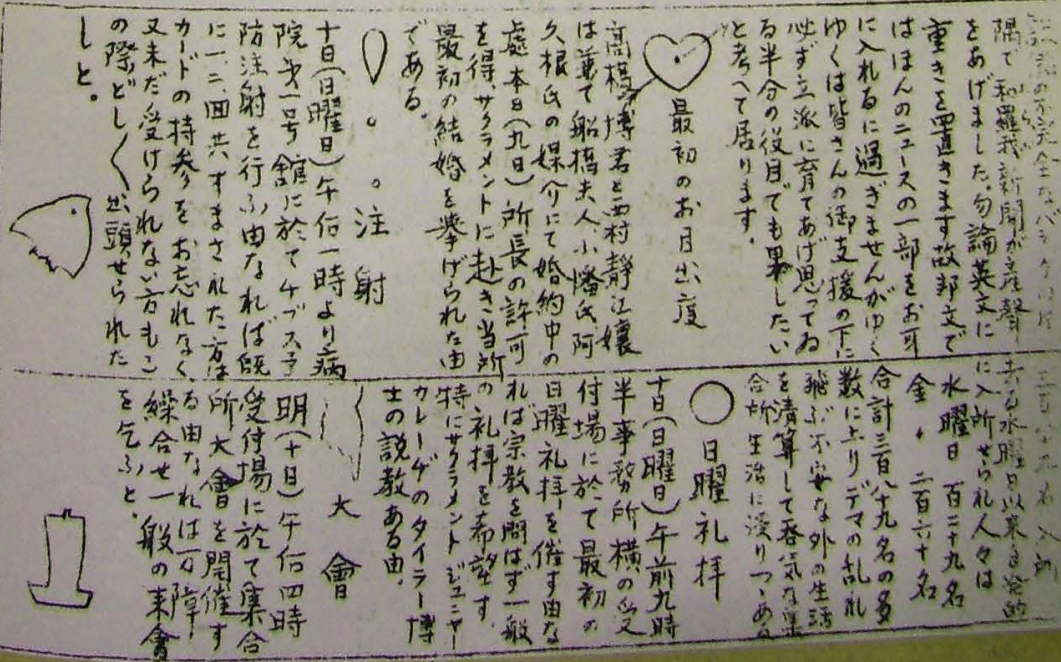 隅で和羅我新聞が産聲
をあげました。勿論英文に
重きを置きます故邦文で
はほんのニュースの一部をお可
に入れるに過ぎませんがゆく
ゆくは皆さんの御支援の下に
必ず立派に育てあげ思ってゐ
る半分の役目でも果したい
と考へて居ります。
最初のお目出度
高橋博君と西村靜江孃
は兼て船橋夫人、小幡氏、阿
久根氏の媒介にて婚約中の
處本日(九日)所長の許可
を得、サクラメントに赴き当所
最初の結婚を挙げられた由
である。
注射
十日(日曜日)午后一時より病
院第一号館に於てチブス予
防注射を行ふ由なれば既
に一、二回共すまされた方は
カードの持参をお忘れなく、
又未だ受けられない方もこ
の際どしどし出頭せられた
しと。
去る水曜日以来自発的
に入所せられ人々は
水曜日 百二十九名
金〃 二百六十名
合計三百八十九名の多
数に上りデマの乱れ
飛ぶ不安な外の生活
を清算して呑気な集
合所生活に浸りつゝあ
日曜礼拝
十日(日曜日)午前九時
半事務所横の受
付場に於て最初の
日曜礼拝を催す由な
れば宗教を問はず一般
の礼拝を希望す。
特にサクラメントジュニヤー
カレーヂのタイラー博
士の説教ある由。
大會
明(十日)午后四時
受付場に於て集合
所大會を開催す
る由なれば万障
繰合せ一般の来會
を乞ふと。